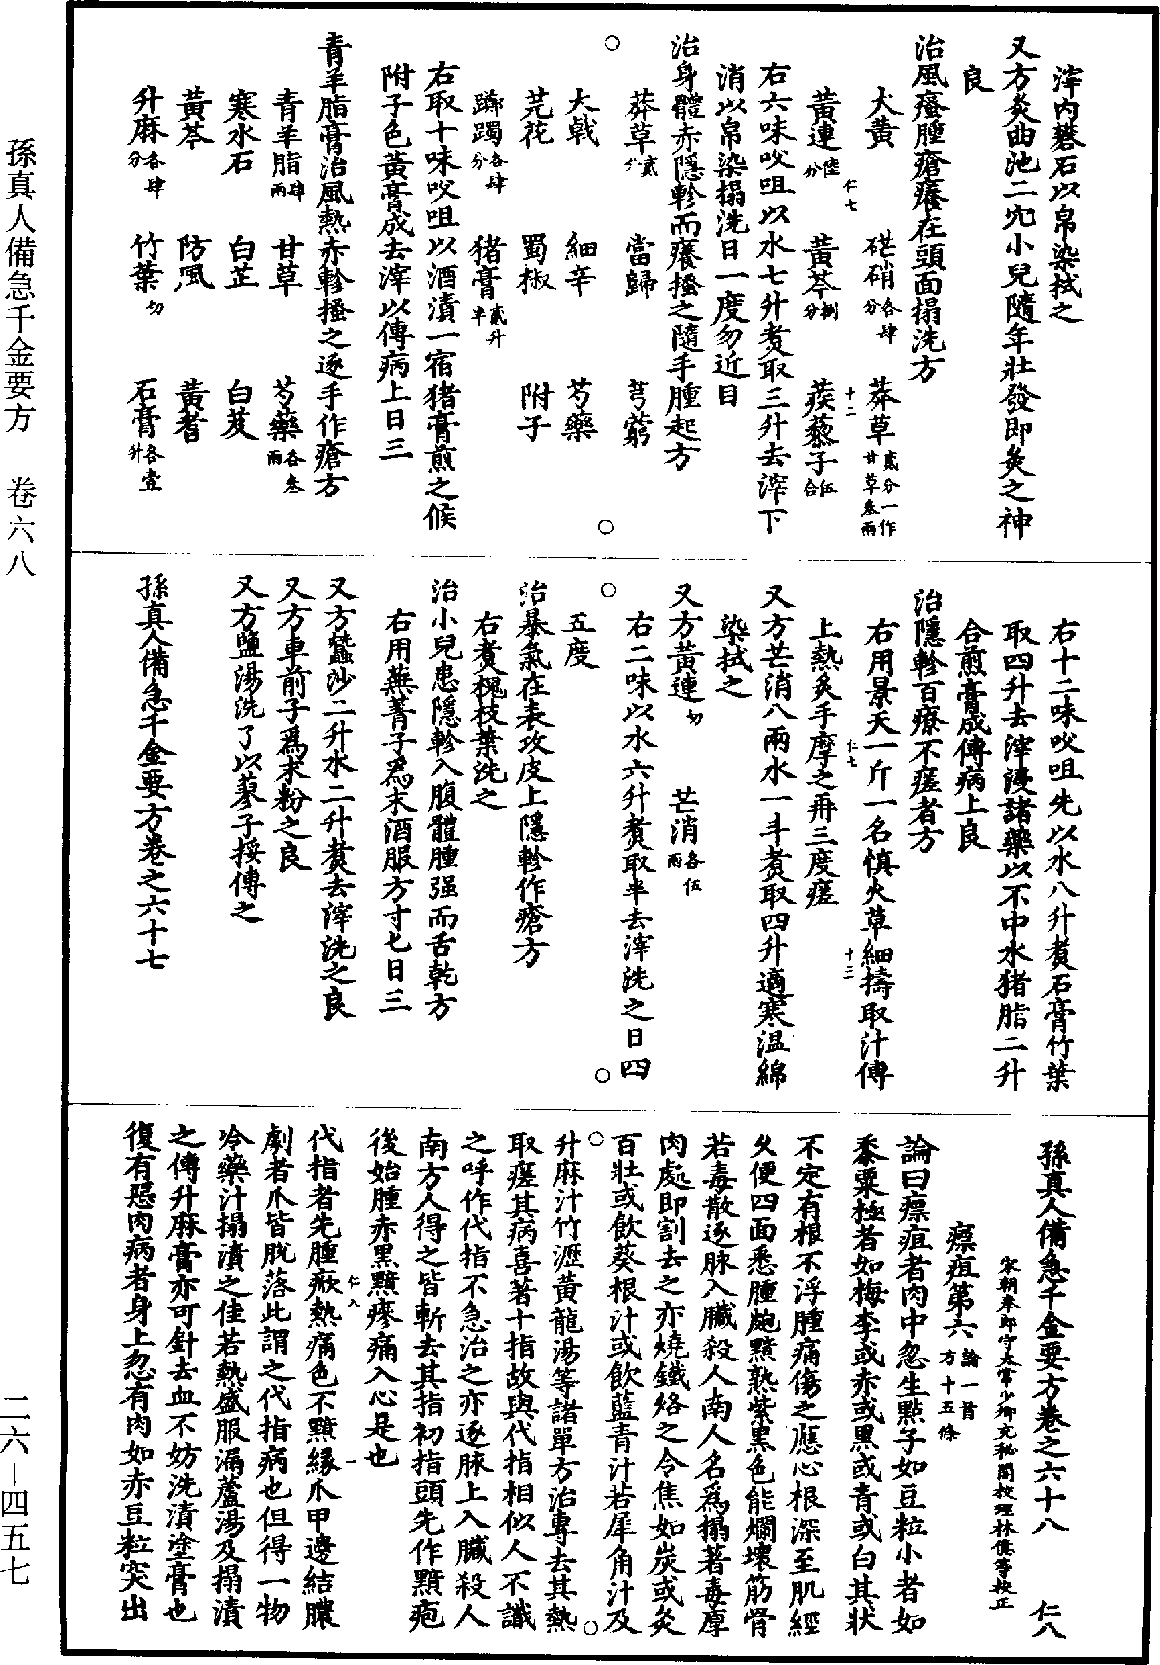 滓内礬石以帛染拭之
又方灸曲池二穴小兒隨年壯發即灸之神
良
治風瘙腫瘡癢在頭面搨洗方
大黄 硭硝各肆分 莽草貳分一作甘草叁兩
黄連陸分 黄芩捌分 蒺藜子伍合
仁七 十二
右六味㕮咀以水七升煮取三升去滓下
消以帛染搨洗日一度勿近目
治身體赤隱軫而癢搔之隨手腫起方
莽草貳分 當歸 芎藭
大戟 細辛 芍藥
芫花 蜀椒 附子
躑躅各肆分 猪膏貳升半
右取十味㕮咀以酒漬一宿猪膏煎之候
附子色黄膏成去滓以傅病上日三
青羊脂膏治風熱赤軫搔之逐手作瘡方
青羊脂肆兩 甘草 芍藥各叁兩
寒水石 白芷 白芨
黄芩 防風 黄耆
升麻各肆分 竹葉切 石膏各壹升
右十二味㕮咀先以水八升煮石膏竹葉
取四升去滓浸諸藥以不中水猪脂二升
合煎膏成傅病上良
治隱軫百療不瘥者方
右用景天一斤一名慎火草細擣取汁傅
上熱灸手摩之再三度瘥
仁七 十三
又方芒消八兩水一斗煮取四升適寒温綿
染拭之
又方黄連切 芒消各伍兩
右二味以水六升煮取半去滓洗之日四
五度
治暴氣在表攻皮上隱軫作瘡方
右煮槐枝葉洗之
治小兒患隱軫入腹體腫强而舌乾方
右用蕪菁子爲末酒服方寸七日三
又方蠶沙二升水二升煮去滓洗之良
又方車前子爲末粉之良
又方鹽湯洗了以蓼子挼傅之
孫真人備急千金要方卷之六十七
孫真人備急千金要方卷之六十八 仁八
宋朝奉郎守太常少卿充秘閣校理林億等校正
瘭疽第六論一首方十五條
論曰瘭疽者肉中忽生點子如豆粒小者如
黍粟極者如梅李或赤或黑或青或白其狀
不定有根不浮腫痛傷之應心根深至肌經
久便四面悉腫皰黯熟紫黑色能爛壞筋骨
若毒散逐脉入臟殺人南人名爲搨著毒厚
肉處即割去之亦燒鐵烙之令焦如炭或灸
百壯或飲葵根汁或飲藍青汁若犀角汁及
升麻汁竹瀝黄龍湯等諸單方治專去其熱
取瘥其病喜著十指故與代指相似人不識
之呼作代指不急治之亦逐脉上入臟殺人
南方人得之皆斬去其指初指頭先作黯疱
後始腫赤黑黯㾗痛入心是也
仁八 一
代指者先腫焮熱痛色不黯緣爪甲邊結膿
劇者爪皆脱落此謂之代指病也但得一物
冷藥汁搨漬之佳若熱盛服漏蘆湯及搨漬
之傅升麻膏亦可針去血不妨洗漬塗膏也
復有惡肉病者身上忽有肉如赤豆粒突出
孫真人備急千金要方 卷六八
二六—四五七